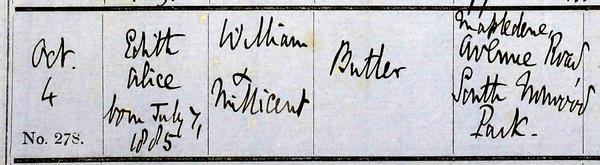 Oct.
4
No. 278.
Edith
Alice
born July 7,
1885
William
&
Millicent
Butler
Mapledene,
Avenue Road,
South Norwood
Park.